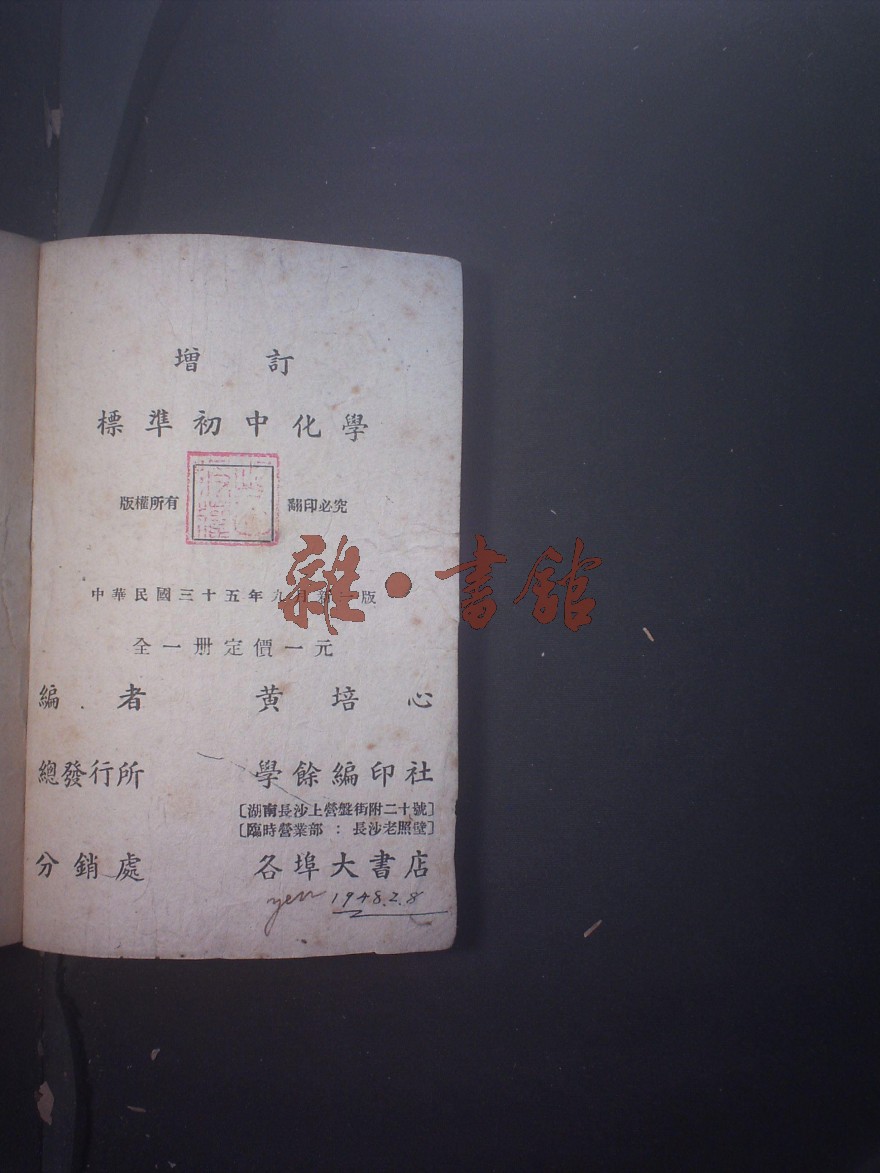 增訂
標準初中化學
版權所有 翻印必究
中華民國三十五年九月新一版
全一册定價一元
編者 黄培心
總發行所 學餘編印社
〔湖南長沙上營盤街附二十號〕
〔臨時營業部：長沙老照壁〕
分銷處 各埠大書店
yen 1948.2.8
雜·書館